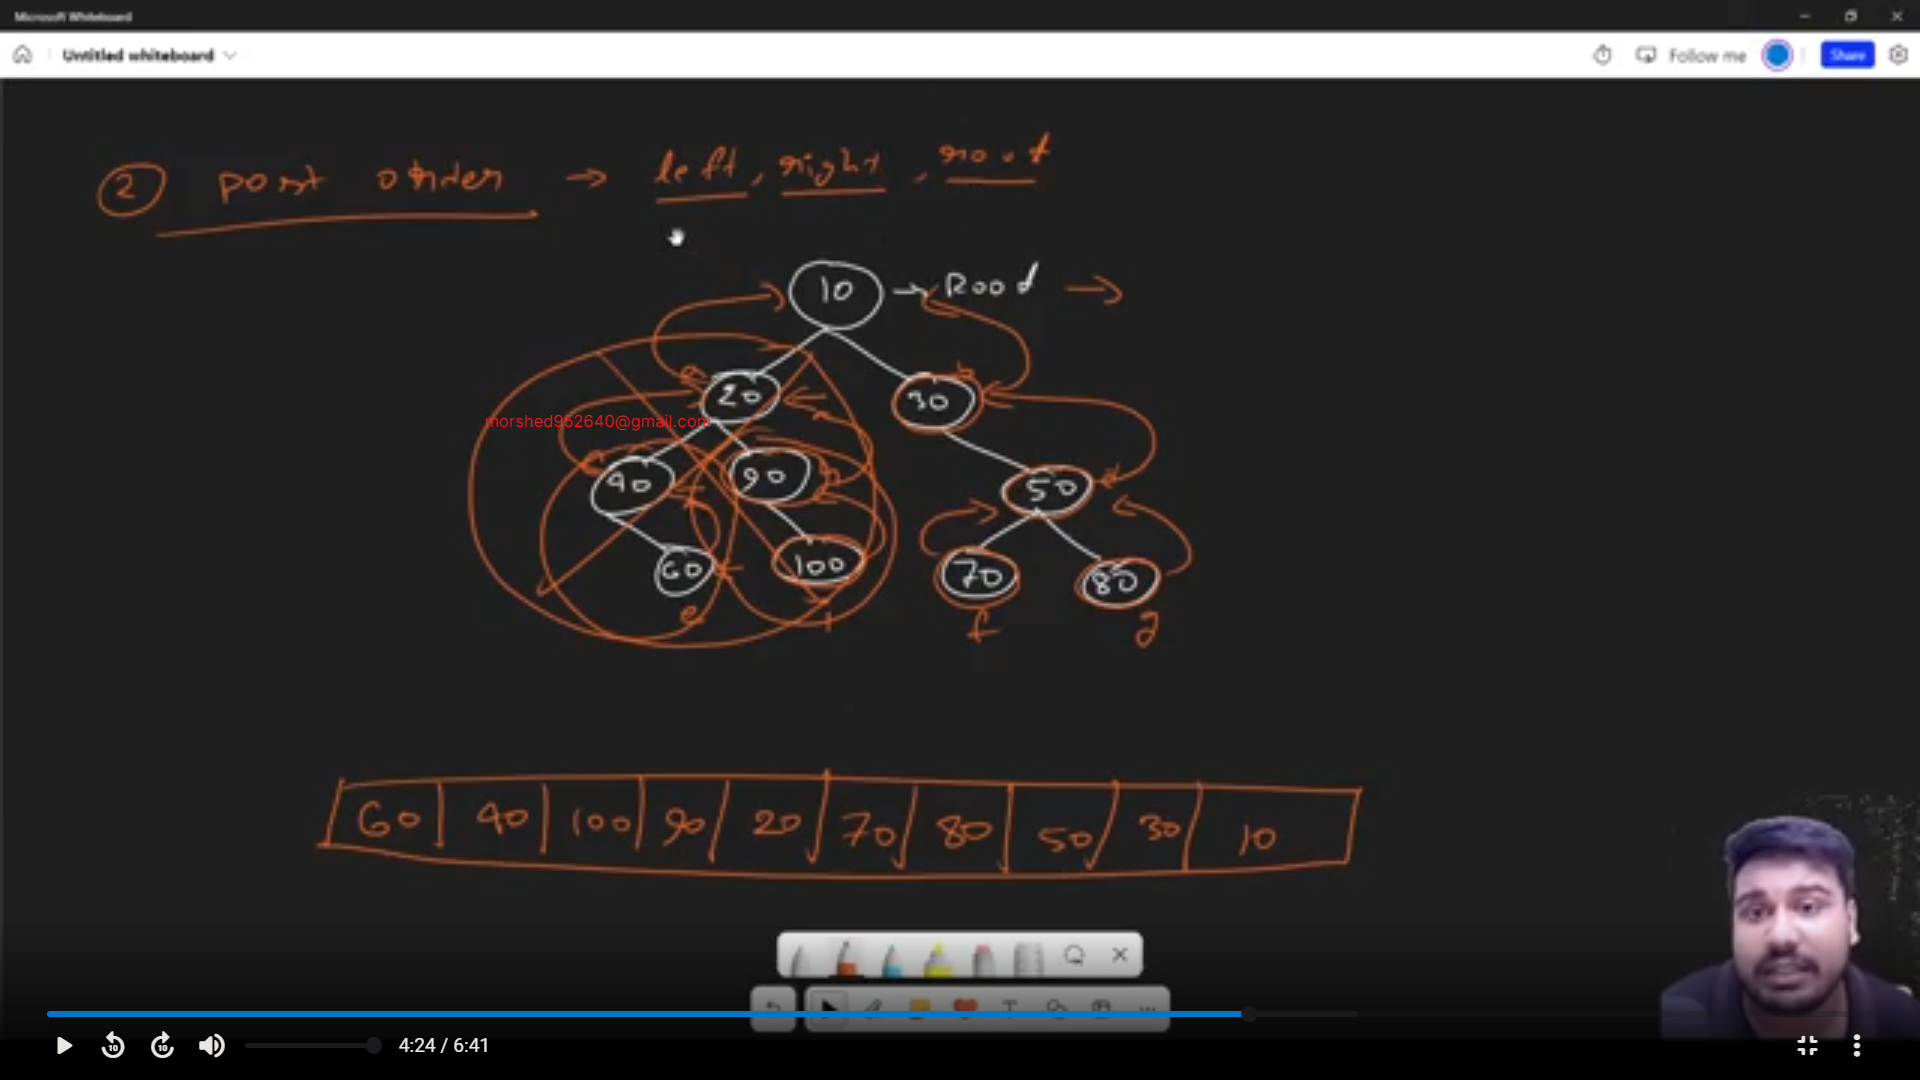 Microsoft Whiteboard
Untitled whiteboard
Follow me
Share
2 post order → left, right, root
10 → Rood →
20 30
morshed952640@gmail.com
40 90 50
60 100 70 80
e f g
60 40 100 90 20 70 80 50 30 10
T
10 10 4:24 / 6:41